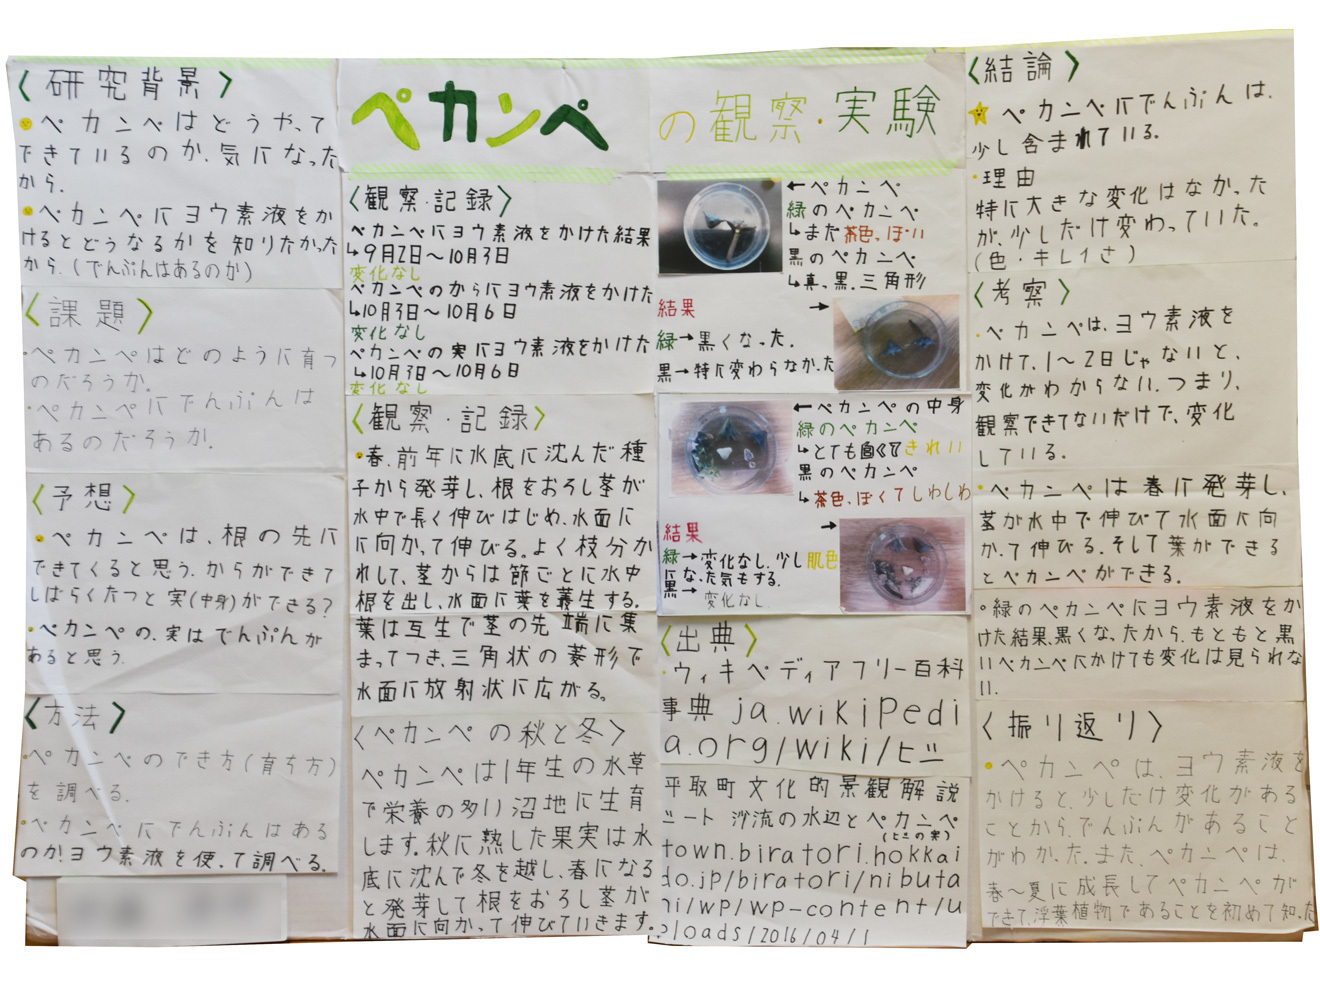 ペカンペの観察・実験
〈研究背景〉
・ペカンペはどうやって
できているのか、気になった
から。
・ペカンペにヨウ素液をか
けるとどうなるかを知りたかった
から。(でんぷんはあるのか)
〈課題〉
・ペカンペはどのように育つ
のだろうか。
・ペカンペにでんぷんは
あるのだろうか。
〈予想〉
・ペカンペは、根の先に
できてくると思う。からができて
しばらくたつと実(中身)ができる?
・ペカンペの、実はでんぷんが
あると思う。
〈方法〉
・ペカンペのでき方(育ち方)
を調べる。
・ペカンペにでんぷんはある
のか!ヨウ素液を使って調べる。
〈観察・記録〉
ペカンペにヨウ素液をかけた結果
↳9月2日〜10月3日
変化なし
ペカンペのからにヨウ素液をかけた
↳10月3日〜10月6日
変化なし
ペカンペの実にヨウ素液をかけた
↳10月3日〜10月6日
変化なし
〈観察・記録〉
・春、前年に水底に沈んだ種
子から発芽し、根をおろし茎が
水中で長く伸びはじめ、水面に
に向かって伸びる。よく枝分か
れして、茎からは節ごとに水中
根を出し、水面に葉を叢生する。
葉は互生で茎の先端に集
まってつき、三角状の菱形で
水面に放射状に広がる。
〈ペカンペの秋と冬〉
ペカンペは1年生の水草
で栄養の多い沼地に生育
します。秋に熟した果実は水
底に沈んで冬を越し、春になる
と発芽して根をおろし茎が
水面に向かって伸びていきます。
←ペカンペ
緑のペカンペ
↳まだ茶色、ぽい
黒のペカンペ
↳真、黒、三角形
結果
→
緑→黒くなった。
黒→特に変わらなかった
←ペカンペの中身
緑のペカンペ
↳とても白くてきれい
黒のペカンペ
↳茶色、ぽくてしわしわ
→
結果
緑→変化なし。少し肌色
になった気もする。
黒→変化なし
〈出典〉
・ウィキペディアフリー百科
事典 ja.wikipedi
a.org/wiki/ヒシ
平取町文化的景観解説
シート 沙流の水辺とペカンペ
(ヒシの実)
town.biratori.hokkai
do.jp/biratori/nibuta
ni/wp/wp-content/u
ploads/2016/04/1
〈結論〉
ペカンペにでんぷんは、
少し含まれている。
・理由
特に大きな変化はなかった
が、少しだけ変わっていた。
(色・キレイさ)
〈考察〉
・ペカンペは、ヨウ素液を
かけて、1〜2日じゃないと、
変化がわからない。つまり、
観察できてないだけで、変化
している。
・ペカンペは春に発芽し、
茎が水中で伸びて水面に向
かって伸びる。そして葉ができる
とペカンペができる。
・緑のペカンペにヨウ素液をか
けた結果、黒くなったから、もともと黒
いペカンペにかけても変化は見られな
い。
〈振り返り〉
・ペカンペは、ヨウ素液を
かけると、少しだけ変化がある
ことから、でんぷんがあること
がわかった。また、ペカンペは、
春〜夏に成長してペカンペが
できて、浮葉植物であることを初めて知った